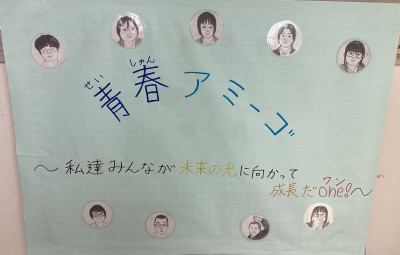 せい しゅん
青春アミーゴ
～私達みんなが未来の光に向かって
ワン
成長だone!～